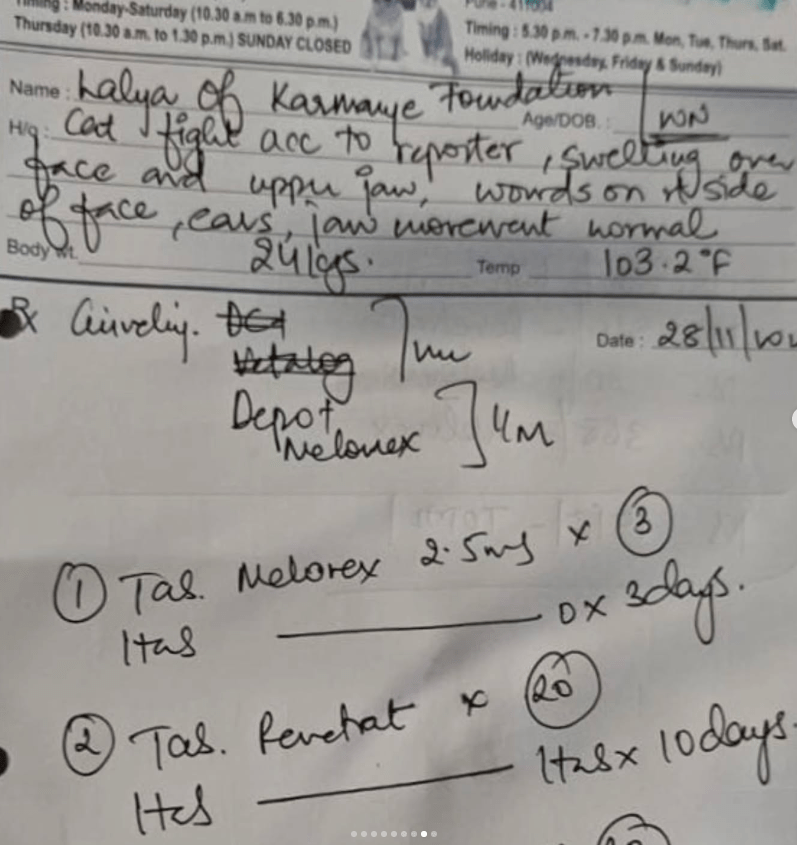 Timing : Monday-Saturday (10.30 a.m to 6.30 p.m.)
Thursday (10.30 a.m. to 1.30 p.m.) SUNDAY CLOSED
Pune - 411004
Timing : 5.30 p.m. - 7.30 p.m. Mon, Tue, Thurs, Sat.
Holiday : (Wednesday, Friday & Sunday)
Name : Lalya Of Karmaye Foundation
Age/DOB. :
H/o : Cat fight acc to reporter, swelling over
face and upper jaw, wounds on rt side
of face, ears, jaw movement normal
Body wt. 24 kgs. Temp 103.2°F
Rx Date : 28/11/
Depot
Melonex
① Tab. Melonex 2.5mg x ③
1tab ——— 0 x 3days.
② Tab. x ⑳
1tab ——— 1tab x 10days.